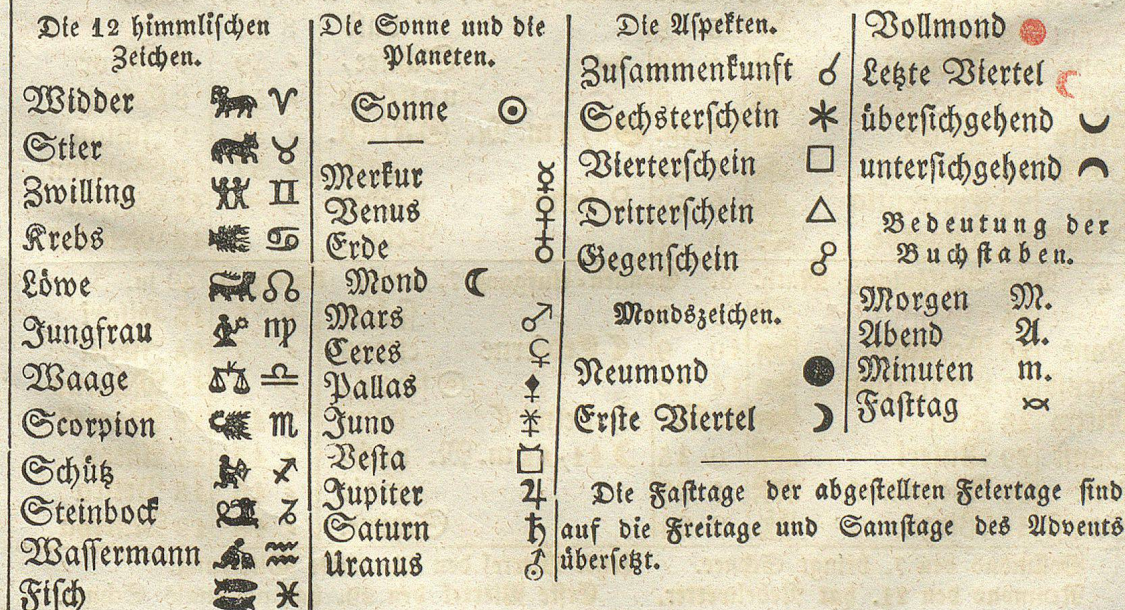 Die 12 himmlischen
Zeichen.
Widder ♈
Stier ♉
Zwilling ♊
Krebs ♋
Löwe ♌
Jungfrau ♍
Waage ♎
Scorpion ♏
Schütz ♐
Steinbock ♑
Wassermann ♒
Fisch ♓
Die Sonne und die
Planeten.
Sonne ☉
Merkur ☿
Venus ♀
Erde ♁
Mond ☾
Mars ♂
Ceres ⚳
Pallas ⚴
Juno ⚵
Vesta ⚶
Jupiter ♃
Saturn ♄
Uranus ⛢
Die Aspekten.
Zusammenkunft ☌
Sechsterschein ⚹
Vierterschein □
Dritterschein △
Gegenschein ☍
Mondszeichen.
Neumond ●
Erste Viertel ☽
Vollmond
Letzte Viertel ☾
übersichgehend
untersichgehend
Bedeutung der
Buchstaben.
Morgen M.
Abend A.
Minuten m.
Fasttag
Die Fasttage der abgestellten Feiertage sind
auf die Freitage und Samstage des Advents
übersetzt.